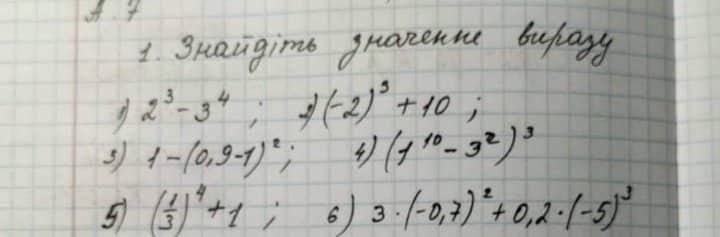 А. 7
1. Знайдіть значення виразу
1) 2³ - 3⁴ ; 2) (-2)³ + 10 ;
3) 1 - (0,9-1)² ; 4) (1¹⁰ - 3²)³
5) (1/3)⁴ + 1 ; 6) 3 · (-0,7)² + 0,2 · (-5)³